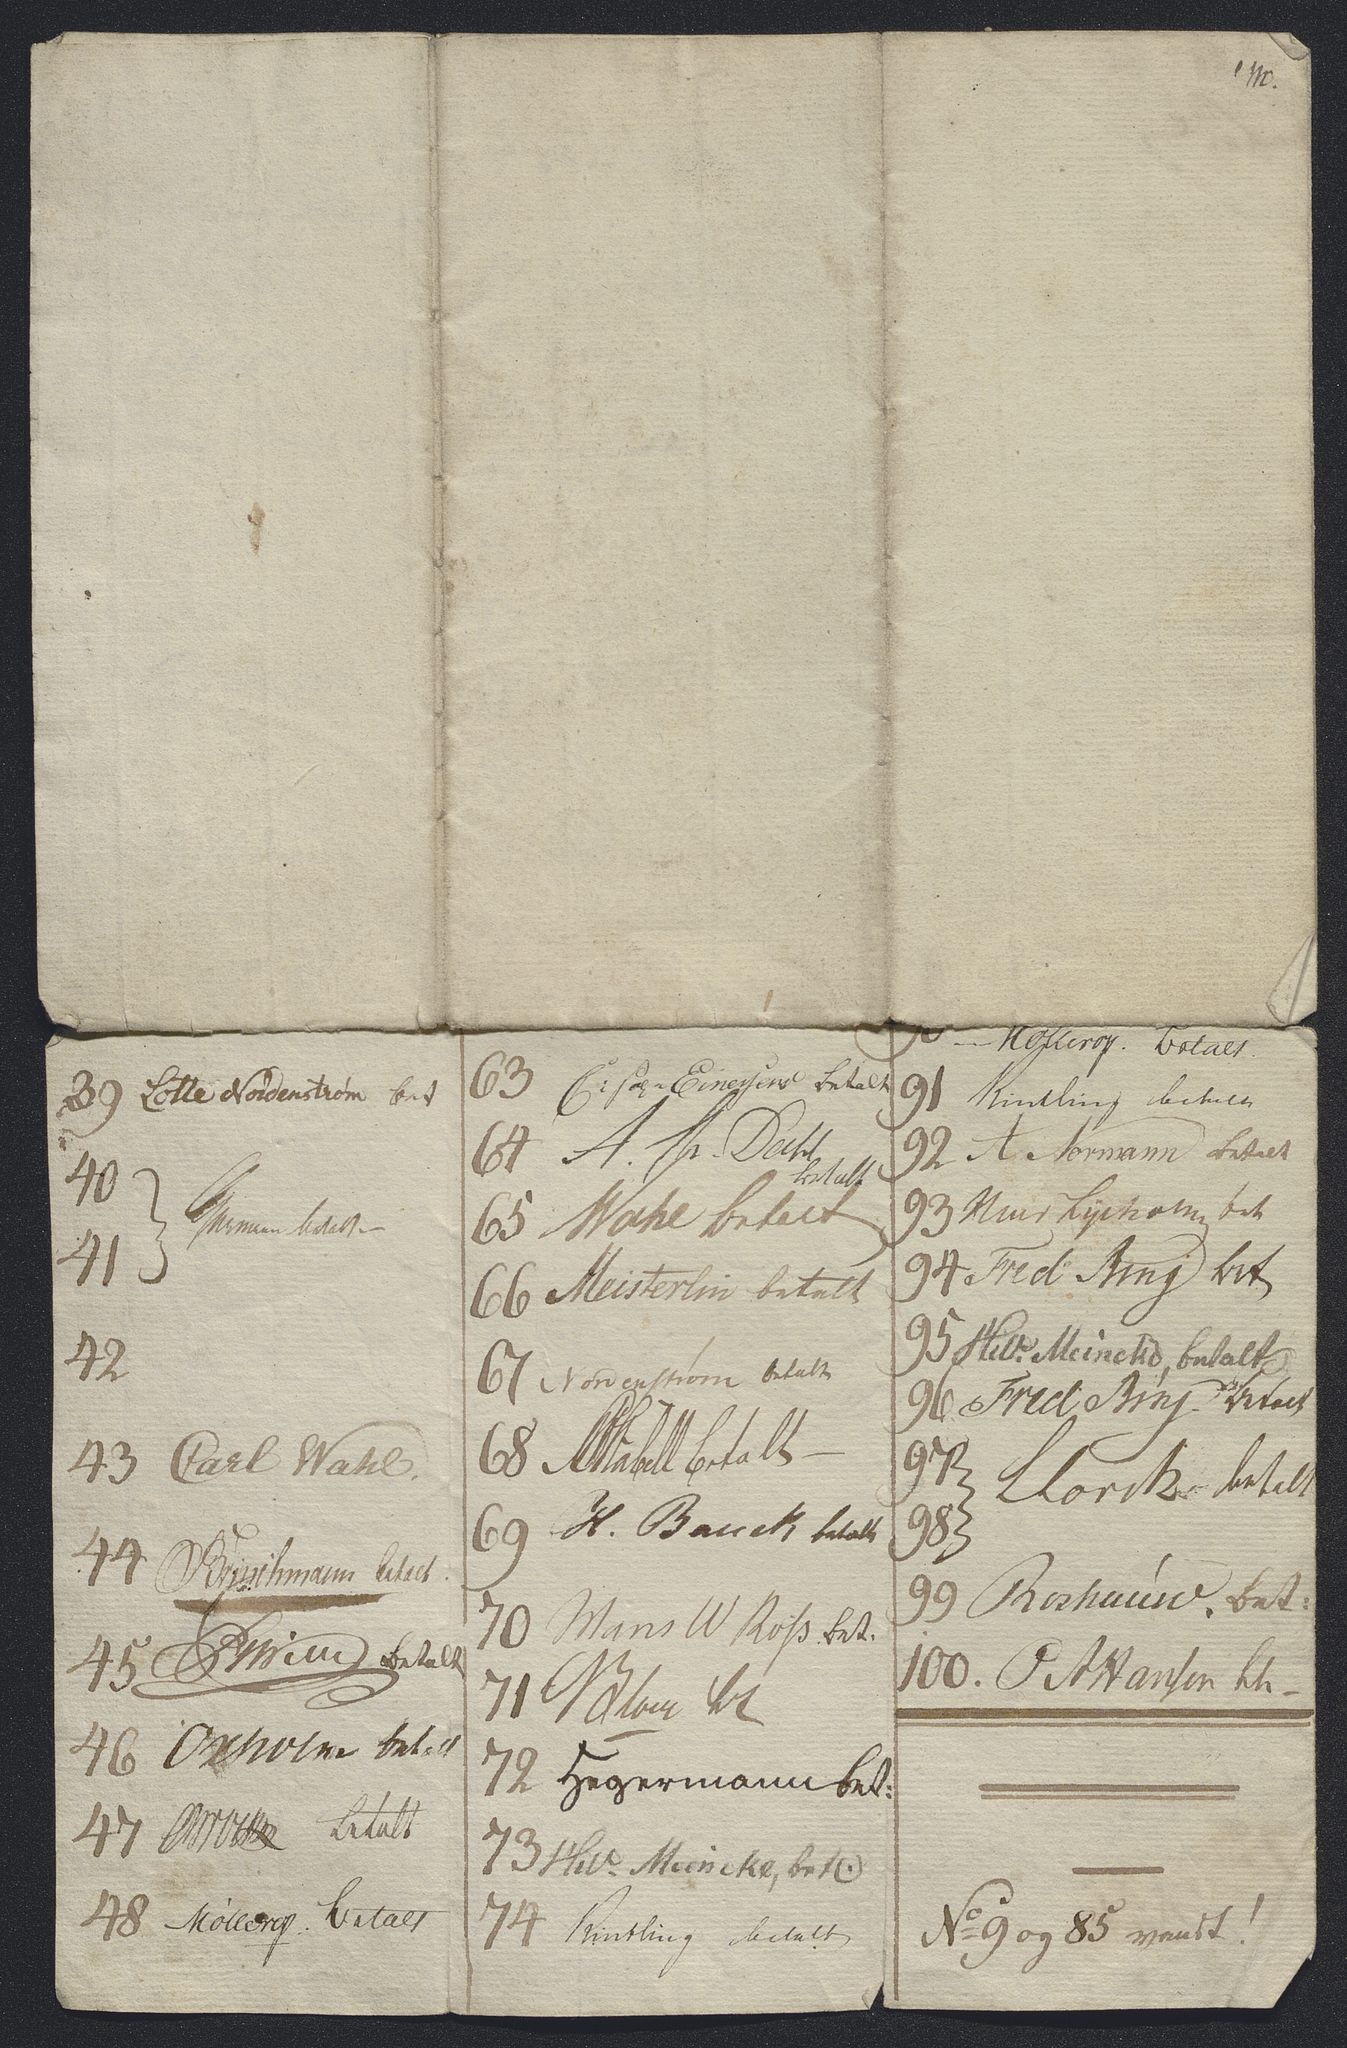 m.
39 Lotte Nordenstrøm bet
40
41 betalt
42
43 Carl Wahl.
44 Brischmann betalt.
45 betalt
46 Oxholm betalt
47 betalt
48 Møllerop. betalt
63 Einersens betalt
64 A. Dahl
betalt
65 Wahl betalt
66 Meisterlin betalt
67 Nordenstrøm betalt
68 betalt
69 H. Bauck betalt
70 Mans W Roß. bet.
71 bet
72 Hegermann bet:
73 Meincke, bet
74 Kindling betalt
Møllerop. betalt.
91 Kindling betalt
92 A Normann betalt
93 bet
94 Fred Ring bet
95 Meincke, betalt
96 Fred Ring betalt
97
98 Lorck betalt
99 bet:
100. P A Hansen bt
No 9 og 85 vandt!